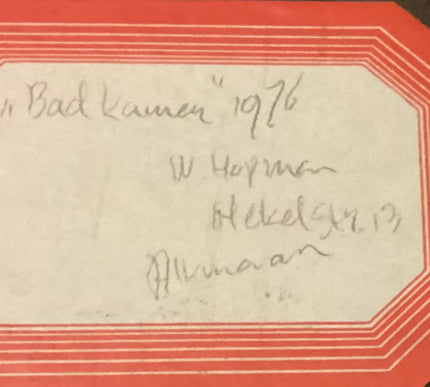 „Badkamer" 1976
W. Hopman
Hekelstr. 13
Alkmaar